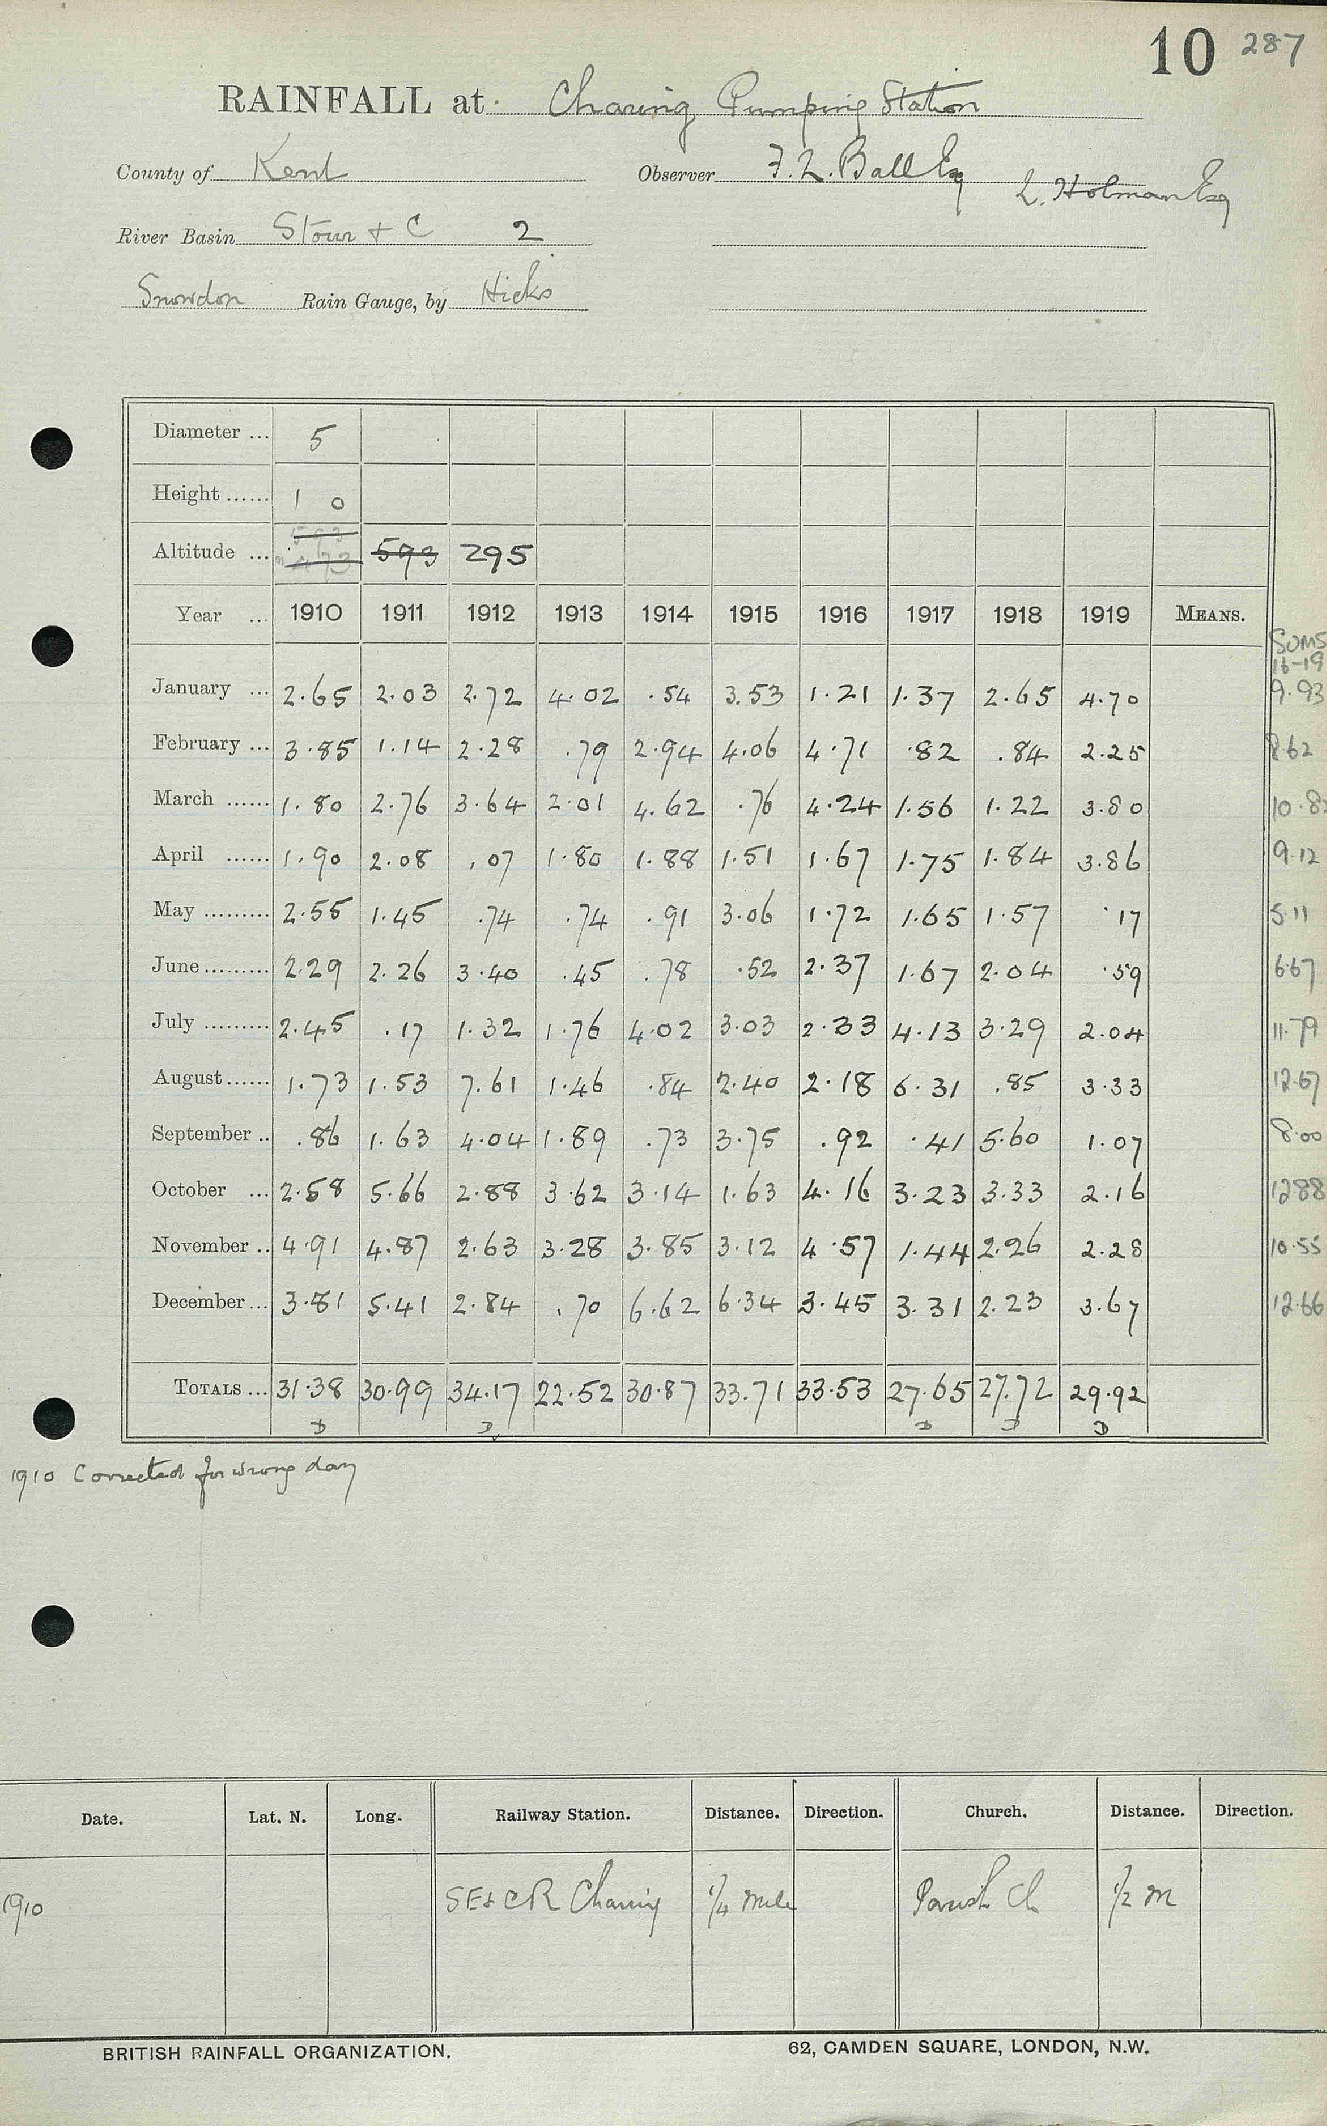 10 287
RAINFALL at Charing Pumping Station
County of Kent Observer F. L. Ball Esq L. Holman Esq
River Basin Stour & C 2
Snowdon Rain Gauge, by Hicks
Diameter ... 5
Height ...... 1 0
Altitude ... 593 593 295
Year ... 1910 1911 1912 1913 1914 1915 1916 1917 1918 1919 MEANS.
SUMS
16-19
January ... 2.65 2.03 2.72 4.02 .54 3.53 1.21 1.37 2.65 4.70 9.93
February ... 3.85 1.14 2.28 .79 2.94 4.06 4.71 .82 .84 2.25 8.62
March ...... 1.80 2.76 3.64 2.01 4.62 .76 4.24 1.56 1.22 3.80 10.8
April ...... 1.90 2.08 .07 1.80 1.88 1.51 1.67 1.75 1.84 3.86 9.12
May ......... 2.55 1.45 .74 .74 .91 3.06 1.72 1.65 1.57 .17 5.11
June ......... 2.29 2.26 3.40 .45 .78 .52 2.37 1.67 2.04 .59 6.67
July ......... 2.45 .17 1.32 1.76 4.02 3.03 2.33 4.13 3.29 2.04 11.79
August ...... 1.73 1.53 7.61 1.46 .84 2.40 2.18 6.31 .85 3.33 12.67
September .. .86 1.63 4.04 1.89 .73 3.75 .92 .41 5.60 1.07 8.00
October ... 2.58 5.66 2.88 3.62 3.14 1.63 4.16 3.23 3.33 2.16 12.88
November .. 4.91 4.87 2.63 3.28 3.85 3.12 4.57 1.44 2.26 2.28 10.55
December ... 3.81 5.41 2.84 .70 6.62 6.34 3.45 3.31 2.23 3.67 12.66
TOTALS ... 31.38 30.99 34.17 22.52 30.87 33.71 33.53 27.65 27.72 29.92
D D D D D
1910 Corrected for wrong day
Date. Lat. N. Long. Railway Station. Distance. Direction. Church. Distance. Direction.
1910 SE & CR Charing 1/4 mile Parish Ch 1/2 m
BRITISH RAINFALL ORGANIZATION. 62, CAMDEN SQUARE, LONDON, N.W.